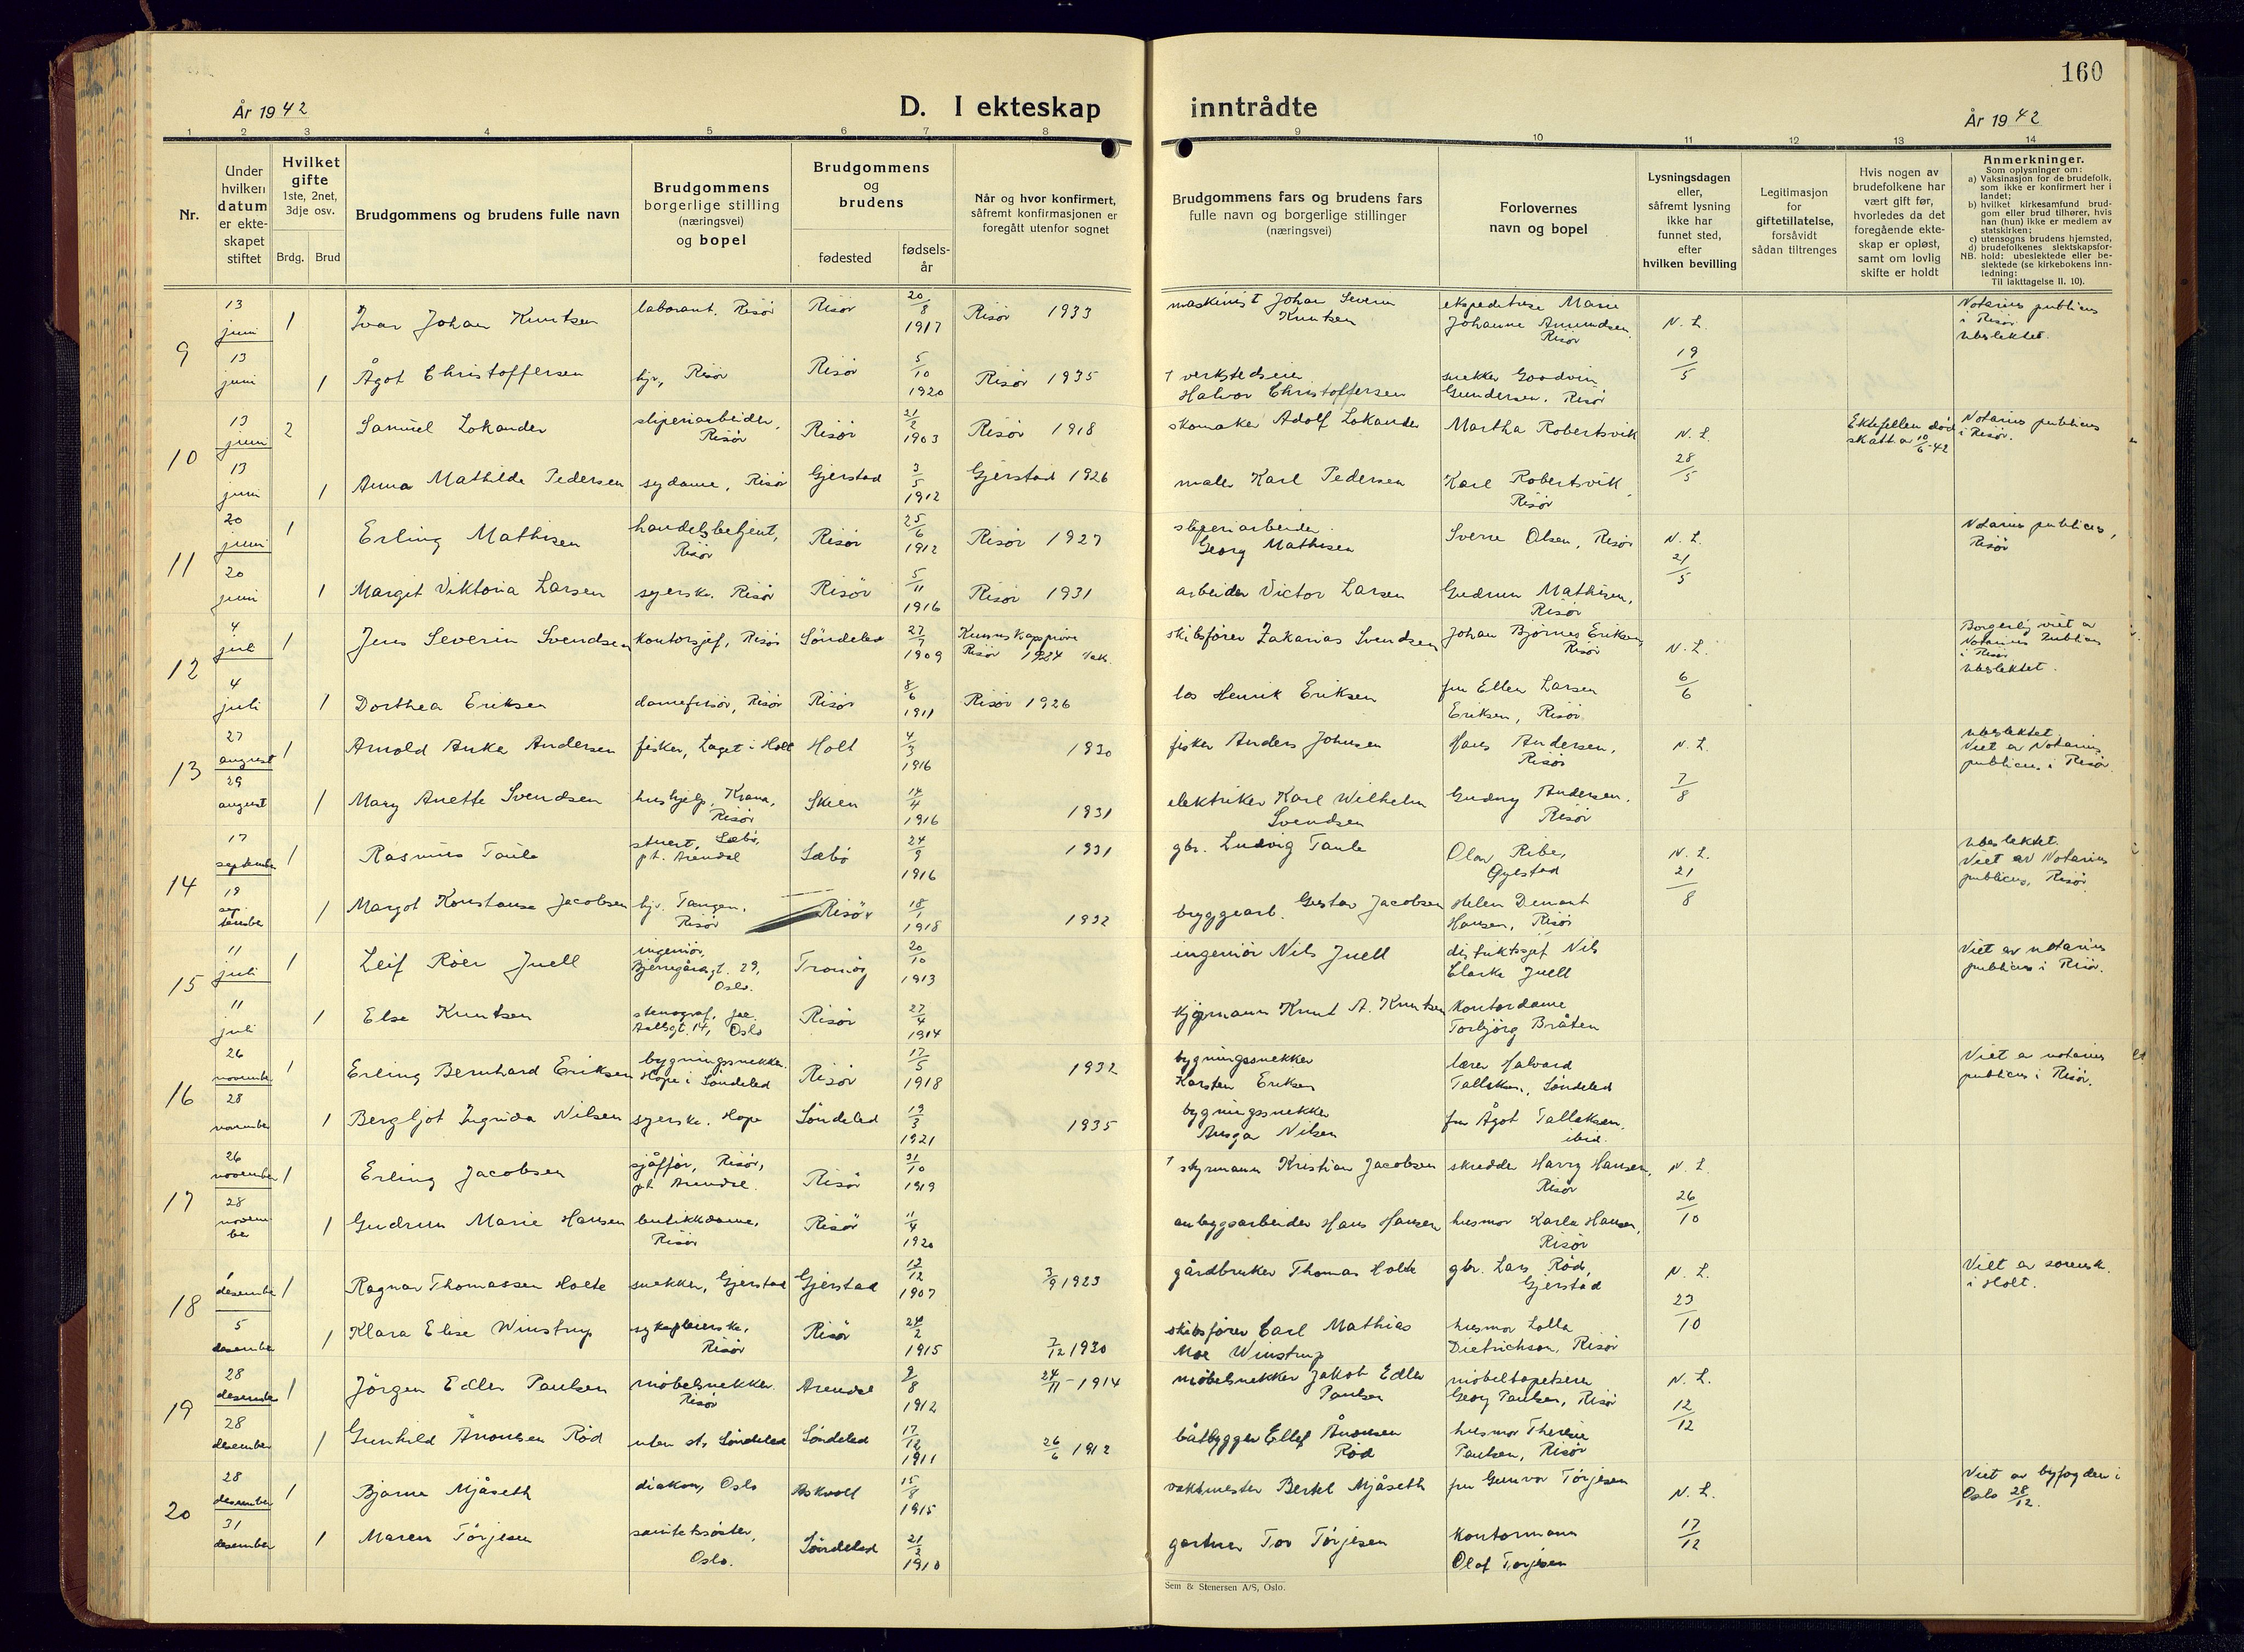 160
År 1942
D. I ekteskap inntrådte
År 1942
1 2 3 4 5 6 7 8 9 10 11 12 13 14
Nr.
Under
hvilken
datum
er ekte-
skapet
stiftet
Hvilket
gifte
1ste, 2net,
3dje osv.
Brdg.
Brud
Brudgommens og brudens fulle navn
Brudgommens
borgerlige stilling
(næringsvei)
og bopel
Brudgommens
og
brudens
fødested
fødsels-
år
Når og hvor konfirmert,
såfremt konfirmasjonen er
foregått utenfor sognet
Brudgommens fars og brudens fars
fulle navn og borgerlige stillinger
(næringsvei)
Forlovernes
navn og bopel
Lysningsdagen
eller,
såfremt lysning
ikke har
funnet sted,
efter
hvilken bevilling
Legitimasjon
for
giftetillatelse,
forsåvidt
sådan tiltrenges
Hvis nogen av
brudefolkene har
vært gift før,
hvorledes da det
foregående ekte-
skap er opløst,
samt om lovlig
skifte er holdt
Anmerkninger.
Som oplysninger om:
a) Vaksinasjon for de brudefolk,
som ikke er konfirmert her i
landet;
b) hvilket kirkesamfund brud-
gom eller brud tilhører, hvis
han (hun) ikke er medlem av
statskirken;
c) utensogns brudens hjemsted,
d) brudefolkenes slektskapsfor-
NB. hold: ubeslektede eller be-
slektede (se kirkebokens inn-
ledning:
Til iakttagelse II. 10).
9
13 juni 1 Ivar Johan Knutsen laborant. Risør Risør 20/8 1917 Risør 1933 maskinist Johan Severin Knutsen ekspeditrise Marie Johanne Amundsen, Risør N. L. 19/5 Notarius publicus i Risør ubeslektet.
13 juni 1 Ågot Christoffersen hjv, Risør Risør 5/10 1920 Risør 1935 † verkstedseier Halvor Christoffersen snekker Goodvin Gundersen, Risør
10
13 juni 2 Samuel Lokander sliperiarbeider, Risør Risør 21/2 1903 Risør 1918 skomaker Adolf Lokander Martha Robertsvik N. L. 28/5 Ektefellen død skatt a 10/6-42 Notarius publicus i Risør.
13 juni 1 Anna Mathilde Pedersen sydame, Risør Gjerstad 3/5 1912 Gjerstad 1926 maler Karl Pedersen Karl Robertsvik, Risør
11
20 juni 1 Erling Mathisen handelsbetjent, Risør Risør 25/6 1912 Risør 1927 sliperiarbeider Georg Mathisen Sverre Olsen, Risør N. L. 21/5 Notarius publicus, Risør
20 juni 1 Margit Viktoria Larsen syerske. Risør Risør 5/11 1916 Risør 1931 arbeider Victor Larsen Gudrun Mathisen, Risør
12
4 juli 1 Jens Severin Svendsen kontorsjef, Risør Søndeled 27/7 1909 Kunnskapsprøve Risør 1924 skibsfører Zakarias Svendsen Johan Bjørnes Eriksen, Risør N. L. 6/6 Borgerlig viet av Notarius Publicus i Risør ubeslektet.
4 juli 1 Dorthea Eriksen damefrisør, Risør Risør 8/6 1911 Risør 1926 los Henrik Eriksen fru Ellen Larsen Eriksen, Risør.
13
27 august 1 Arnold Anker Andersen fisker, Laget i Holt Holt 4/3 1916 1930 fisker Anders Johnsen Hans Andersen, Risør N. L. 7/8 ubeslektet. Viet av Notarius publicus i Risør.
29 august 1 Mary Anette Svendsen hushjelp, Krana, Risør Skien 14/4 1916 1931 elektriker Karl Wilhelm Svendsen Gudny Andersen. Risør
14
17 september 1 Rasmus Taule stuert, Sæbø, pt. Arendal Sæbø 24/9 1916 1931 gbr. Ludvig Taule Olav Ribe, Øyestad N. L. 21/8 ubeslektet. Viet av Notarius publicus, Risør
19 september 1 Margot Konstanse Jacobsen hjv. Tangen, Risør Risør 18/1 1918 1932 byggearb. Gustav Jacobsen Helen Hansen, Risør
15
11 juli 1 Leif Röer Juell ingeniør, Bjerregårdsgt. 29, Oslo. Tromøy 20/10 1913 ingeniør Nils Juell distriktssjef Nils Clarke Juell Viet av notarius publicus i Risør.
11 juli 1 Else Knutsen stenograf, Jac. Aallsgt. 14, Oslo Risør 27/4 1914 kjøpmann Knut A. Knutsen Kontordame Torbjörg Bråten
16
26 november 1 Erling Bernhard Eriksen bygningssnekker. Hope i Søndeled Risør 17/5 1918 1932 bygningssnekker Karsten Eriksen lærer Halvard Tallaksen, Søndeled Viet av notarius publicus i Risør.
28 november 1 Bergljot Ingrida Nilsen syerske. Hope Søndeled 19/3 1921 1935 bygningssnekker Ansgar Nilsen fru Ågot Tallaksen, ibid.
17
26 november 1 Erling Jacobsen sjåffør, Risør, pt. Arendal. Risør 31/10 1919 † styrmann Kristian Jacobsen skredder Harry Hansen, Risør N. L. 26/10
28 november 1 Gudrun Marie Hansen butikkdame, Risør Risør 11/4 1920 anleggsarbeider Hans Hansen husmor Karla Hansen, Risør
18
1 desember 1 Ragnar Thomassen Holte snekker, Gjerstad Gjerstad 12/12 1907 3/9 1923 gårdbruker Thomas Holte gbr. Lars Rød, Gjerstad N. L. 23/10 Viet av sorensk. i Holt.
5 desember 1 Klara Elise Winstrup sykepleierske, Risør Risør 24/2 1915 7/12 1930 skibsfører Carl Mathias Moe Winstrup husmor Lolla Dietrichson, Risør
19
28 desember 1 Jörgen Edler Paulsen møbelsnekker. Risør Arendal 9/8 1912 24/11 - 1914 møbelsnekker Jakob Edler Paulsen møbeltapetserer Georg Paulsen, Risør N. L. 12/12
28 desember 1 Gunhild Ånonsen Rød uten st, Søndeled Søndeled 17/12 1911 26/6 1912 båtbygger Ellef Ånonsen Rød husmor Therese Paulsen, Risør
20
28 desember 1 Bjarne Mjåseth diakon, Oslo Askvoll 15/8 1915 vaktmester Bertel Mjåseth fru Gunvor Tørjesen N. L. 17/12 Viet av byfogden i Oslo 28/12.
31 desember 1 Maren Tørjesen sanitetssøster, Oslo. Søndeled 21/2 1910 gartner Tor Tørjesen Kontormann Olaf Torjesen
Sem & Stenersen A/S, Oslo.